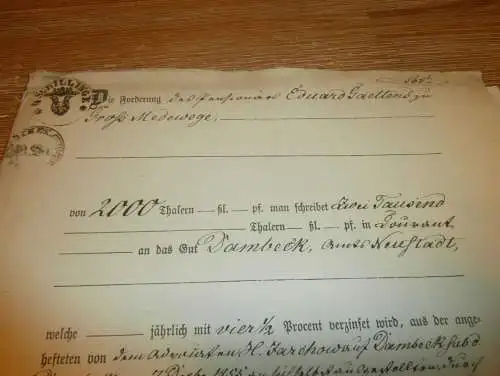 4 SCHILLINGE
Die Forderung des Pensionärs Eduard Gaettens zu
Groß Medewege,
von 2000 Thalern — ßl. — pf. man schreibet Zwei Tausend
Thalern — ßl. — pf. in Courant
an das Gut Dambeck, Amts Neustadt,
welche jährlich mit vier 1/2 Procent verzinset wird, aus der ange-
hefteten von dem Advocaten H. Jarchow auf Dambeck sub d